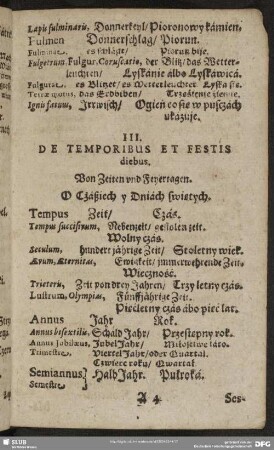 Lapis fulminaris, Donnerkeyl/ Pioronowy kámien.
Fulmen Donnerschlag/ Piorun.
Fulminat, es schlägt/ Piorun bije.
Fulgetrum. Fulgur. Coruscatio, der Blitz/ das Wetter-
leuchten/ Lyskánie álbo Lyskáwicá.
Fulgurat, es Blitzet/ es Wetterleuchtet Lyska sie.
Terræ motus, das Erdbiben/ Trzęsienie ziemie.
Ignis fatuus, Irrwisch/ Ogień co sie w puszczách
ukazuje.
III.
DE TEMPORIBUS ET FESTIS
diebus.
Von Zeiten und Feyertagen.
O Czásiech y Dniách swietych.
Tempus Zeit/ Czás.
Tempus succisivum, Nebenzeit/ gestolen zeit.
Wolny czás.
Seculum, hundert jährige Zeit/ Stoletny wiek.
Ævum, Æternitas, Ewigkeit/ immerwehrende Zeit.
Wieczność.
Trieteris, Zeit von drey Jahren/ Trzy letny czás.
Lustrum, Olympias, Fünffjährige Zeit.
Piecletny czás ábo pieć lat.
Annus Jahr Rok.
Annus bisextilis, Schald Jahr/ Przestępny rok.
Annus jubilæus, Jubel Jahr/ Milosciwe lato.
Trimestre, Viertel Jahr/ oder Quartal.
Czwierć roku/ Quartał.
Semiannus, Halb Jahr. Pułroká.
Semestre
A 4 Ses-
SLUB
DFG